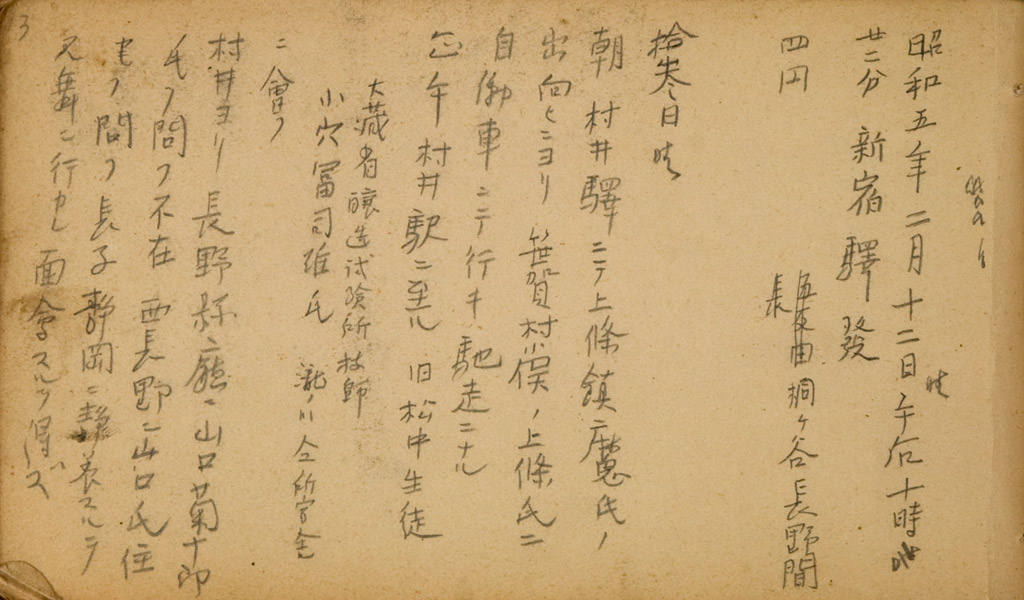 昭和五年 二月 十二日 午后 十時
廿二分 新宿驛發
四円
桐ヶ谷 長野間
拾叁日 晴
朝 村井驛ニテ 上條鎮魔氏ノ
出向ヒニヨリ 笹賀村小俣ノ上條氏ニ
自働車ニテ行キ 馳走ニナル
正午 村井駅ニ至ル 旧松中生徒
大蔵省醸造試験所技師
小穴冨司雄氏 瀧ノ川仝所官舎
ニ會フ
村井ヨリ 長野縣廳ニ山口菊十郎
氏ヲ問フ 不在 西長野ニ山口氏住
宅ヲ問フ 長子 静岡ニ
見舞ニ行カレ 面會スルヲ得ズ